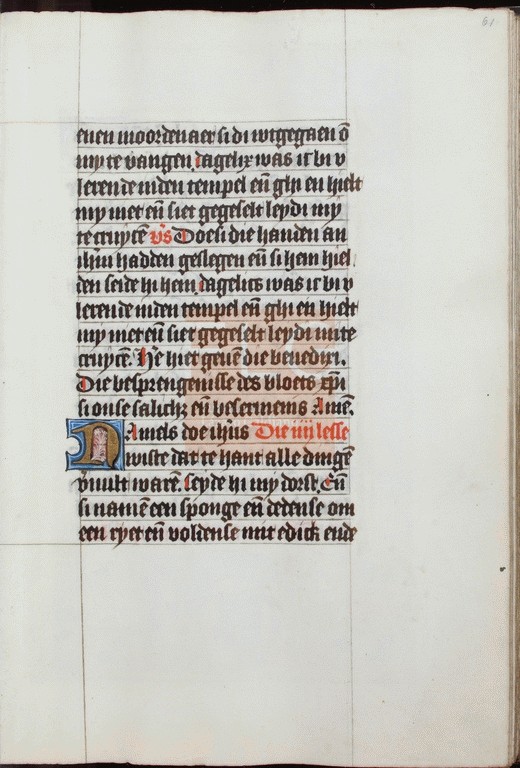 61
enen moordenaer si di wtgegaen ō
my te vangen dagelix was ic bi v
lerende inden tempel eñ ghi en hielt
my niet eñ siet gegeselt leydi my
te cruycē vs Doe si die handen an
ihm̄ hadden geslegen eñ si hem hiel
den seide hi hem dagelics was ic bi v
lerende inden tempel eñ ghi en hielt
my niet eñ siet gegeselt leydi mi te
cruycē. He hiet geuē die benedixi.
Die besprengenisse des bloets xp̄i
si onse salich eñ beschermenis Amē.
Namels doe ih̄us Die iiij lesse
wiste dat te hant alle dingē
v̄uult warē. seyde hi my dorst. Eñ
si namē een sponge eñ dedense om
een ryet eñ voldense mit edick ende